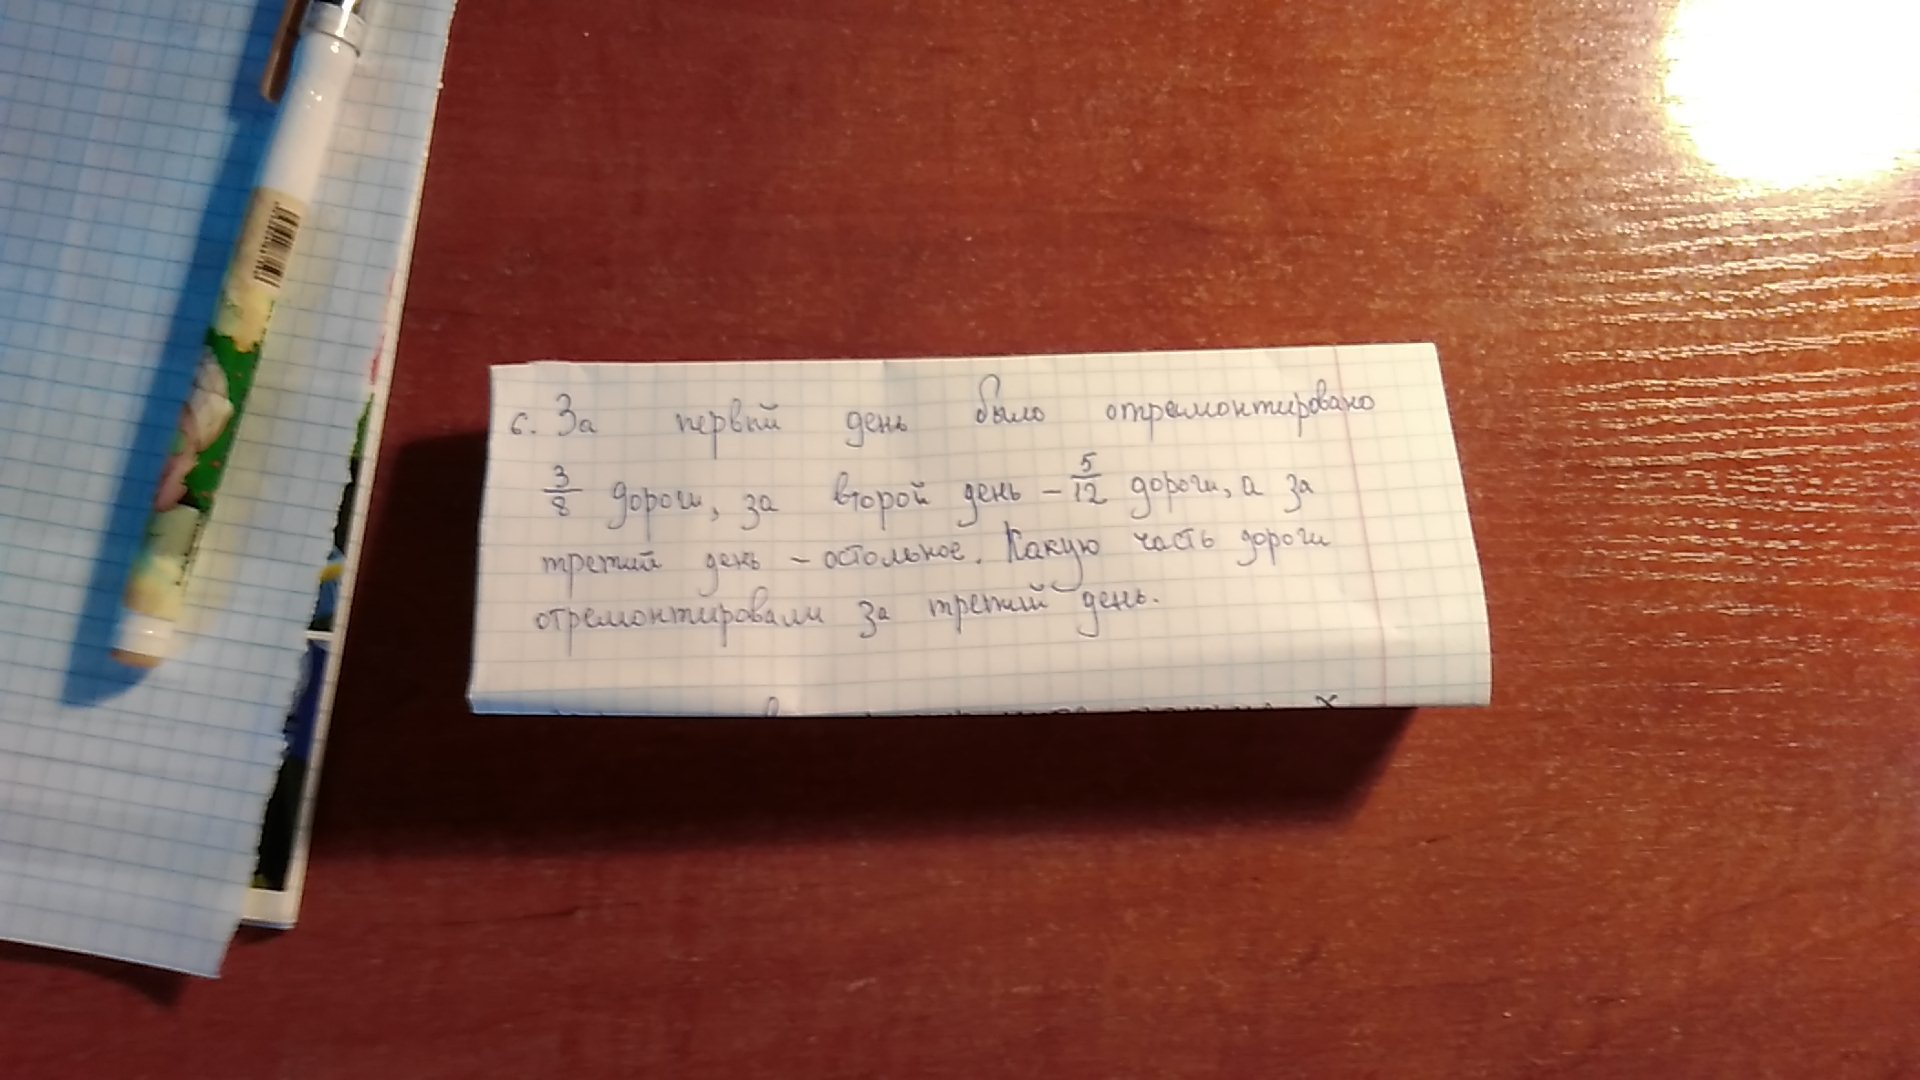 6. За первый день было отремонтировано
3/8 дороги, за второй день – 5/12 дороги, а за
третий день – остольное. Какую часть дороги
отремонтировали за третий день.